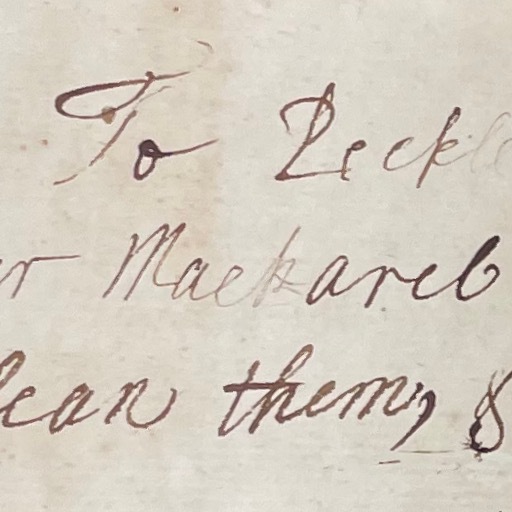 To Pickle
r Mackarel
lean them, &